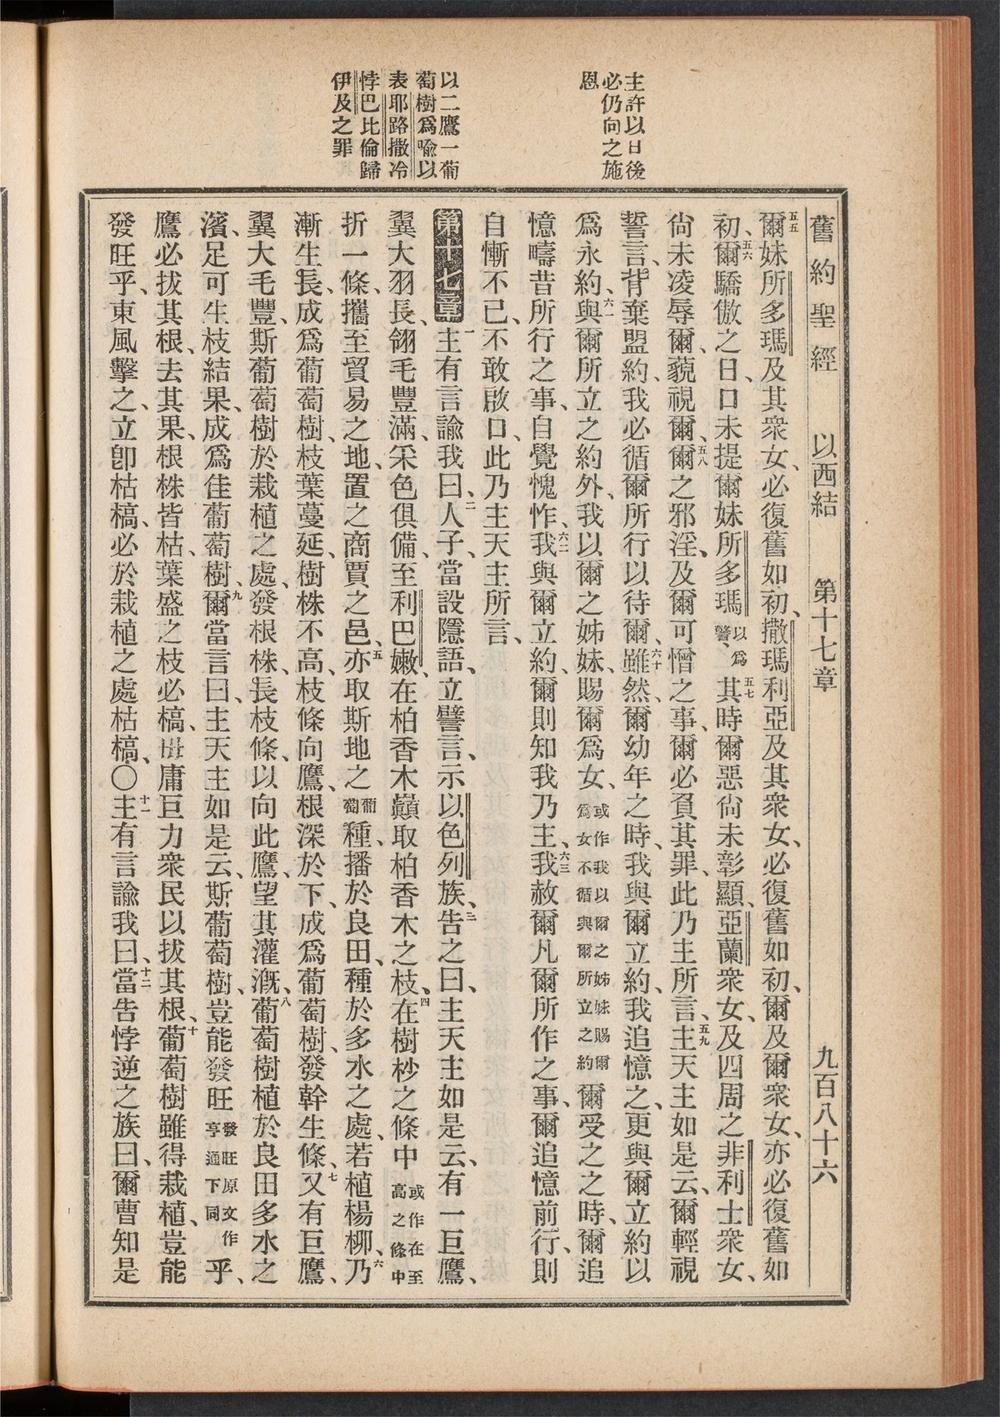 主許以日後
必仍向之施
恩
以二鷹一葡
萄樹爲喻以
表耶路撒冷
悖巴比倫歸
伊及之罪
舊約聖經 以西結 第十七章 九百八十六
五五爾妹所多瑪及其衆女、必復舊如初、撒瑪利亞及其衆女、必復舊如初、爾及爾衆女、亦必復舊如
初、五六爾驕傲之日、口未提爾妹所多瑪以爲警、五七其時爾惡尙未彰顯、亞蘭衆女、及四周之非利士衆女、
尙未凌辱爾、藐視爾、五八爾之邪淫、及爾可憎之事、爾必負其罪、此乃主所言、五九主天主如是云、爾輕視
誓言、背棄盟約、我必循爾所行以待爾、六十雖然、爾幼年之時、我與爾立約、我追憶之、更與爾立約、以
爲永約、六一與爾所立之約外、我以爾之姊妹、賜爾爲女、或作我以爾之姊妹賜爾爲女不循與爾所立之約爾受之之時、爾追
憶疇昔所行之事、自覺愧怍、六二我與爾立約、爾則知我乃主、六三我赦爾凡爾所作之事、爾追憶前行、則
自慚不已、不敢啟口、此乃主天主所言、
第十七章 一主有言諭我曰、二人子、當設隱語、立譬言、示以色列族、三告之曰、主天主如是云、有一巨鷹、
翼大羽長、翎毛豐滿、釆色俱備、至利巴嫩、在柏香木巔取柏香木之枝、四在樹杪之條中或作在至高之條中
折一條、攜至貿易之地、置之商賈之邑、五亦取斯地之葡萄種、播於良田、種於多水之處、若植楊柳、六乃
漸生長、成爲葡萄樹、枝葉蔓延、樹株不高、枝條向鷹、根深於下、成爲葡萄樹、發幹生條、七又有巨鷹、
翼大毛豐、斯葡萄樹於栽植之處、發根株、長枝條、以向此鷹、望其灌漑、八葡萄樹植於良田多水之
濱、足可生枝結果、成爲佳葡萄樹、九爾當言曰、主天主如是云、斯葡萄樹、豈能發旺發旺原文作亨通下同乎、
鷹必拔其根、去其果、根株皆枯、葉盛之枝必槁、毋庸巨力衆民以拔其根、十葡萄樹雖得栽植、豈能
發旺乎、東風擊之、立卽枯槁、必於栽植之處枯槁、○十一主有言諭我曰、十二當告悖逆之族曰、爾曹知是